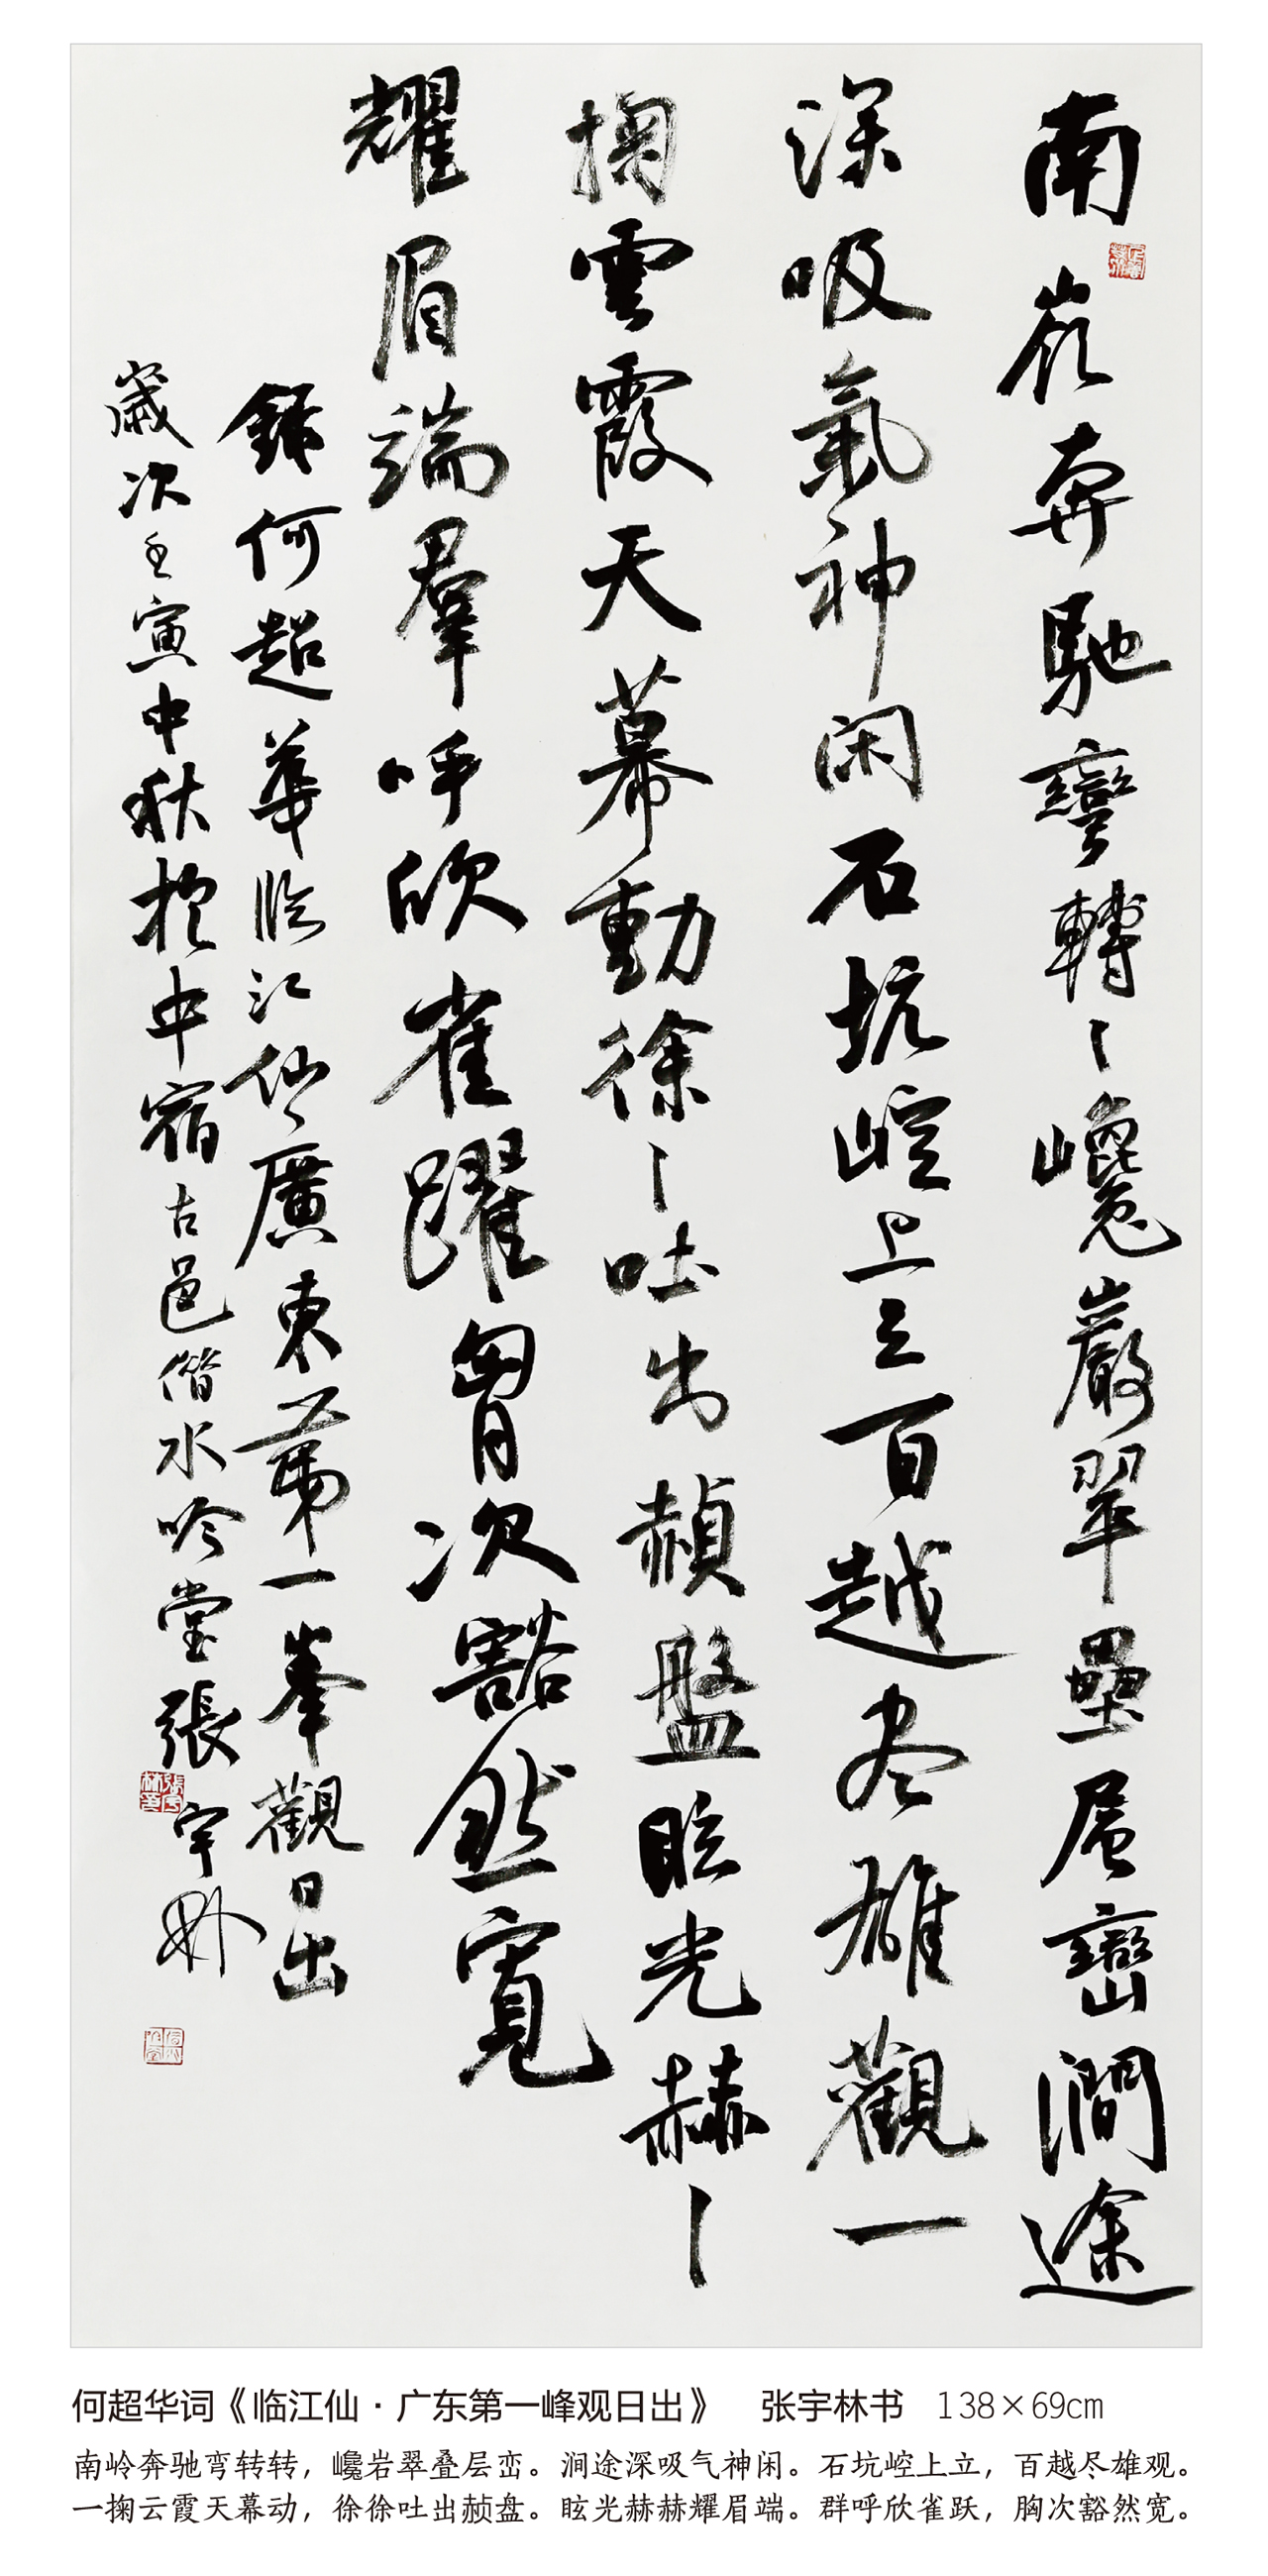 南嶺奔馳彎轉〻巉巖翠壘层巒澗途
深吸氣神闲石坑崆上立百越尽雄觀一
掬雲霞天幕動徐〻吐出赬盤眩光赫〻
耀眉端羣呼欣雀躍胷次豁然寬
錄何超華临江仙廣東第一峯觀日出
歲次壬寅中秋於中宿古邑偕水吟堂張宇林
何超华词《临江仙·广东第一峰观日出》 张宇林书 138×69cm
南岭奔驰弯转转，巉岩翠叠层峦。涧途深吸气神闲。石坑崆上立，百越尽雄观。
一掬云霞天幕动，徐徐吐出赪盘。眩光赫赫耀眉端。群呼欣雀跃，胸次豁然宽。